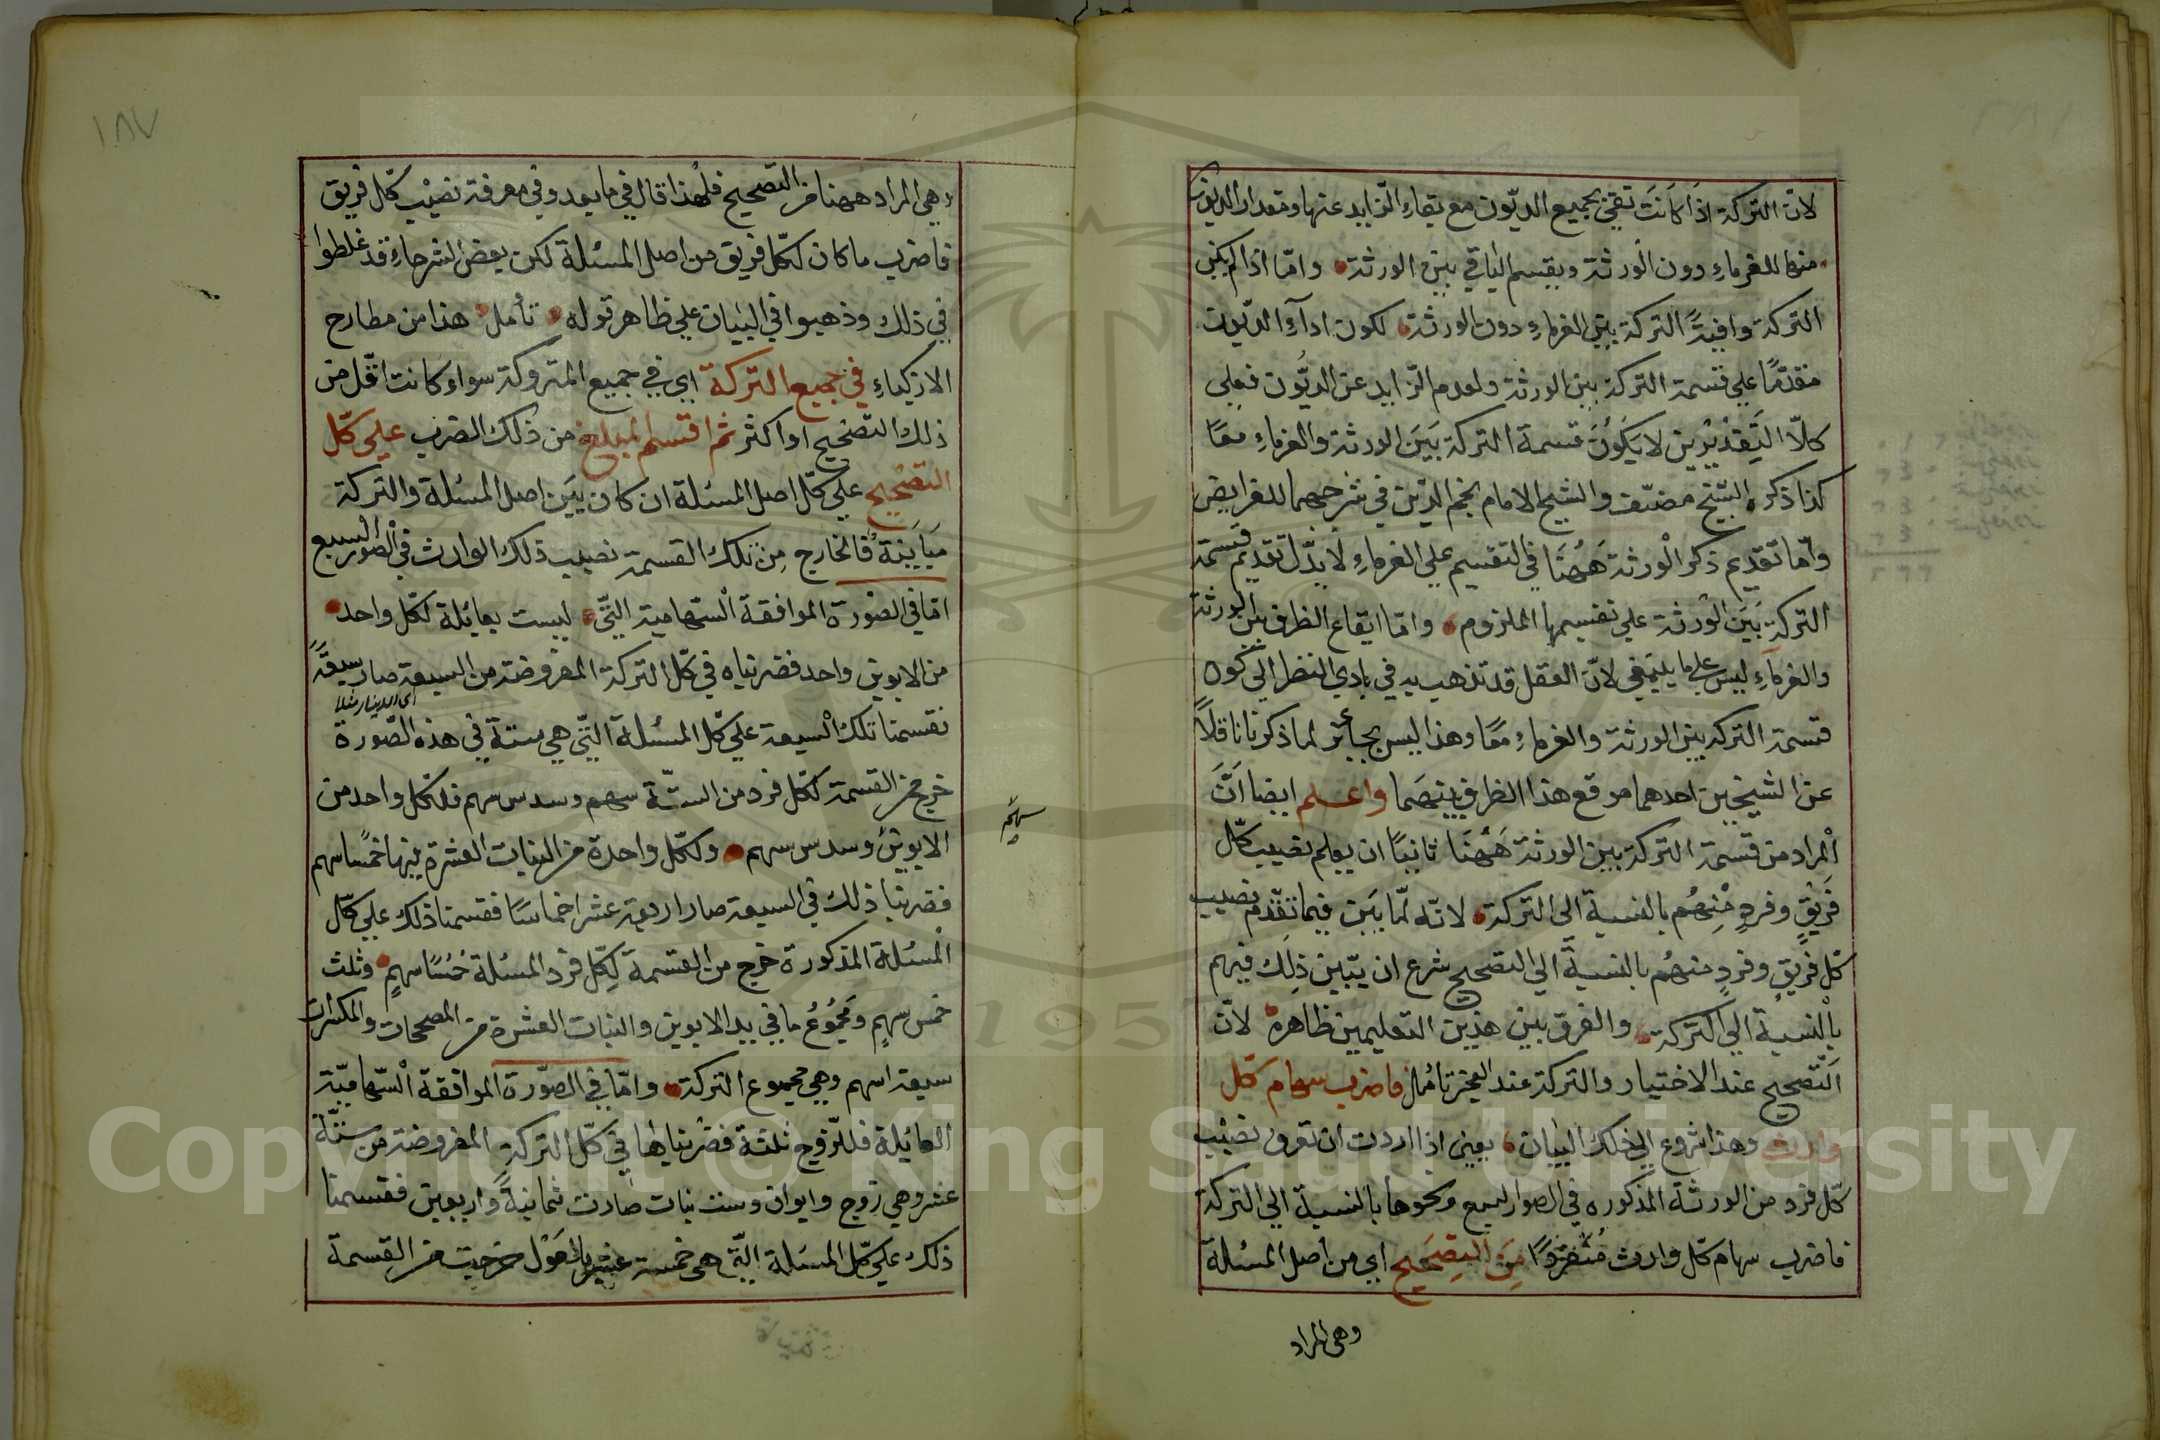 لان التركة اذا كانت تفي بجميع الديون مع بقاء الزايد عنها ومقدار الديون
منها للغرماء دون الورثة ويقسم الباقي بين الورثة واما اذا لم يكن
التركة وافية التركة بين الغرماء دون الورثة لكون اداء الدين
مقدما علي قسمة التركة بين الورثة ولعدم الزايد عن الديون فعلي
كلا التقديرين لا يكون قسمة التركة بين الورثة والغرماء معا
كذا ذكره الشيخ مصنف والشيخ الامام نجم الدين في شرحهما للفرايض
واما تقديم ذكر الورثة ههنا في التقسيم علي الغرماء لا بدل تقديم قسمة
التركة بين الورثة علي تقسيمها الملزوم واما ايقاع الظرف بين الورثة
والغرماء ليس علي ما ينبغي لان العقل قد تذهب به في بادي النظر الي كون
قسمة التركة بين الورثة والغرماء معا وهذا ليس بجائز لما ذكرنا ناقلا
عن الشيخين احدهما موقع هذا الظرف بينهما واعلم ايضا ان
المراد من قسمة التركة بين الورثة ههنا ثانيا ان يعلم نصيب كل
فريق وفرد منهم بالنسبة الي التركة لانه لما بين فيما تقدم نصيب
كل فريق وفرد منهم بالنسبة الي التصحيح شرع ان يتبين ذلك فيهم
بالنسبة الي التركة والفرق بين هذين التعليمين ظاهرة لان
التصحيح عند الاختيار والتركة عند العجز تأمل فاضرب سهام كل
وارث وهذا شروع الي ذلك البيان يعني اذا اردت ان تعرف نصيب
كل فرد من الورثة المذكوره في الصور السبع ونحوها بالنسبة الي التركة
فاضرب سهام كل وارث منفردا من التصحيح اي من اصل المسئلة
وهي المراد
١٨٧
وهي المراد ههنا من التصحيح فلهذا قال في ما بعد وفي معرفة نصيب كل فريق
فاضرب ما كان لكل فريق من اصل المسئلة لكن بعض الشرحاء قد غلطوا
في ذلك وذهبوا في البيان علي ظاهر قوله تأمل هذا من مطارح
الازكياء في جميع التركة اي في جميع المتروكة سواء كانت اقل من
ذلك التصحيح او اكثر ثم اقسم المبلغ من ذلك الضرب علي كل
التصحيح علي كل اصل المسئلة ان كان بين اصل المسئلة والتركة
مباينة فالخارج من تلك القسمة نصيب ذلك الوارث في الصور السبع
اما في الصورة الموافقة السهامية التي ليست بعائلة لكل واحد
من الابوين واحد فضربناه في كل التركة المفروضة من السبعة صار سبعة
اي الدينار مثلا
نقسمنا تلك السبعة علي كل المسئلة التي هي ستة في هذه الصورة
خرج من القسمة لكل فرد من الستة سهم وسدس سهم فلكل واحد من
سهم
الابوين وسدس سهم ولكل واحدة من البنات العشرة بينها خمسا سهم
فضربنا ذلك في السبعة صار اربعة عشر اخماسا فقسمنا ذلك علي كل
المسئلة المذكورة خرج من القسمة لكل فرد المسئلة خمسا سهم وثلث
خمس سهم ومجموع ما في يد الابوين والبنات العشرة من المصححات والمكسرات
سبعة اسهم وهي مجموع التركة واما في الصورة الموافقة السهامية
العائلة فللزوج ثلثة فضربناها في كل التركة المفروضة من ستة
عشر وهي زوج وابوان وست بنات صارت ثمانية واربعين فقسمنا
ذلك علي كل المسئلة التي هي خمسة عشر بالعول خرجت من القسمة
Copyright © King Saud University
1957